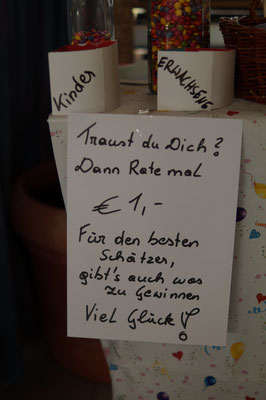 Kinder
ERWACHSENE
Traust du Dich?
Dann Rate mal
€ 1,-
Für den besten
Schätzer,
gibt's auch was
zu Gewinnen
Viel Glück!